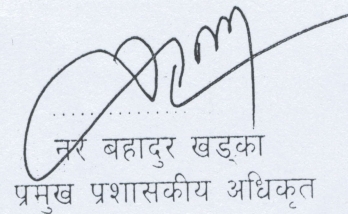 नर बहादुर खड्का
प्रमुख प्रशासकीय अधिकृत